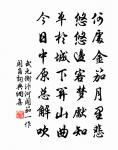 何處金笳月裏悲
悠悠邊客夢先知
單于城下關山曲
今日中原總解吹
武元衡汴河聞笳一作
聞角